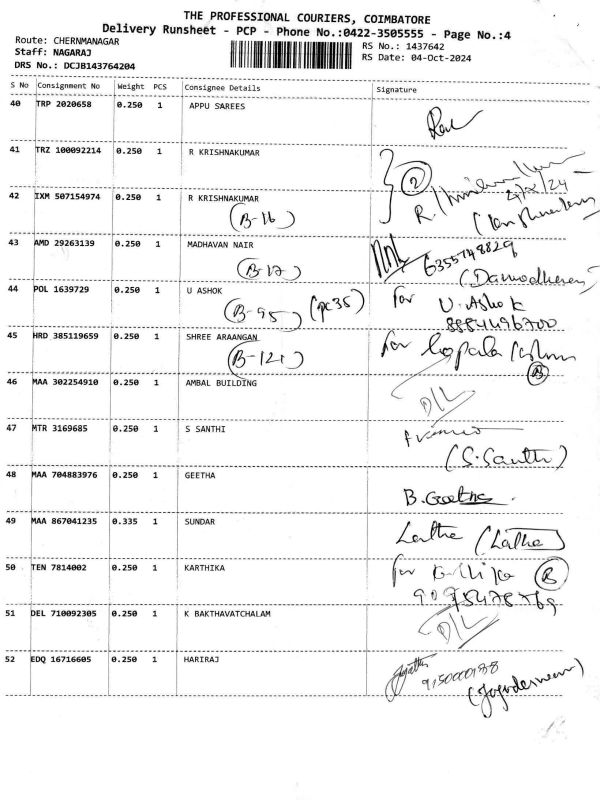 THE PROFESSIONAL COURIERS, COIMBATORE
Delivery Runsheet - PCP - Phone No.:0422-3505555 - Page No.:4
Route: CHERNMANAGAR
RS No.: 1437642
Staff: NAGARAJ
RS Date: 04-Oct-2024
DRS No.: DCJB143764204
S No Consignment No Weight PCS Consignee Details Signature
40 TRP 2020658 0.250 1 APPU SAREES
41 TRZ 100092214 0.250 1 R KRISHNAKUMAR
2
42 IXM 507154974 0.250 1 R KRISHNAKUMAR
(B-16)
43 AMD 29263139 0.250 1 MADHAVAN NAIR
(B-17)
44 POL 1639729 0.250 1 U ASHOK for U. Ashok
(B-95) (pc35) 8884496700
45 HRD 385119659 0.250 1 SHREE ARAANGAN for
(B-121) B
46 MAA 302254910 0.250 1 AMBAL BUILDING
D/L
47 MTR 3169685 0.250 1 S SANTHI
(S. Santhi)
48 MAA 704883976 0.250 1 GEETHA
B. Geetha
49 MAA 867041235 0.335 1 SUNDAR
Latha (Latha)
50 TEN 7814002 0.250 1 KARTHIKA for B
51 DEL 710092305 0.250 1 K BAKTHAVATCHALAM
D/L
52 EDQ 16716605 0.250 1 HARIRAJ